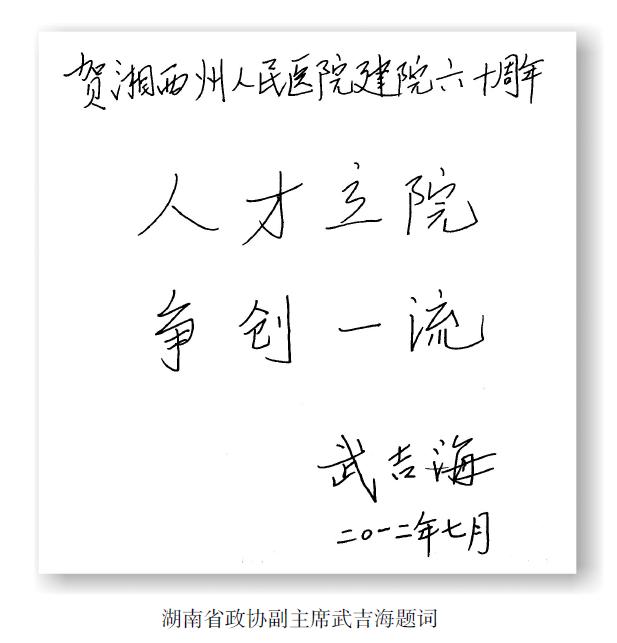 贺湘西州人民医院建院六十周年
人才立院
争创一流
武吉海
二〇一二年七月
湖南省政协副主席武吉海题词